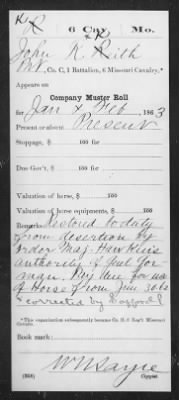 R 6 Cav. Mo.
John R. Rith
Pvt, Co. C, 1 Battalion, 6 Missouri Cavalry,*
Appears on
Company Muster Roll
for Jan & Feb, 1863
Present or absent Present
Stoppage, $ 100 for
Due Gov't, $ 100 for
Valuation of horse, $ 100
Valuation of horse equipments, $ 100
Remarks: Restored to duty
from desertion by
order Maj. Hawkins
authority of
man. Pay due for use
of Horse from
corrected by
*This organization subsequently became Co. Reg't Missouri
Cavalry.
Book mark:
W N Sayre
(858) Copyist.